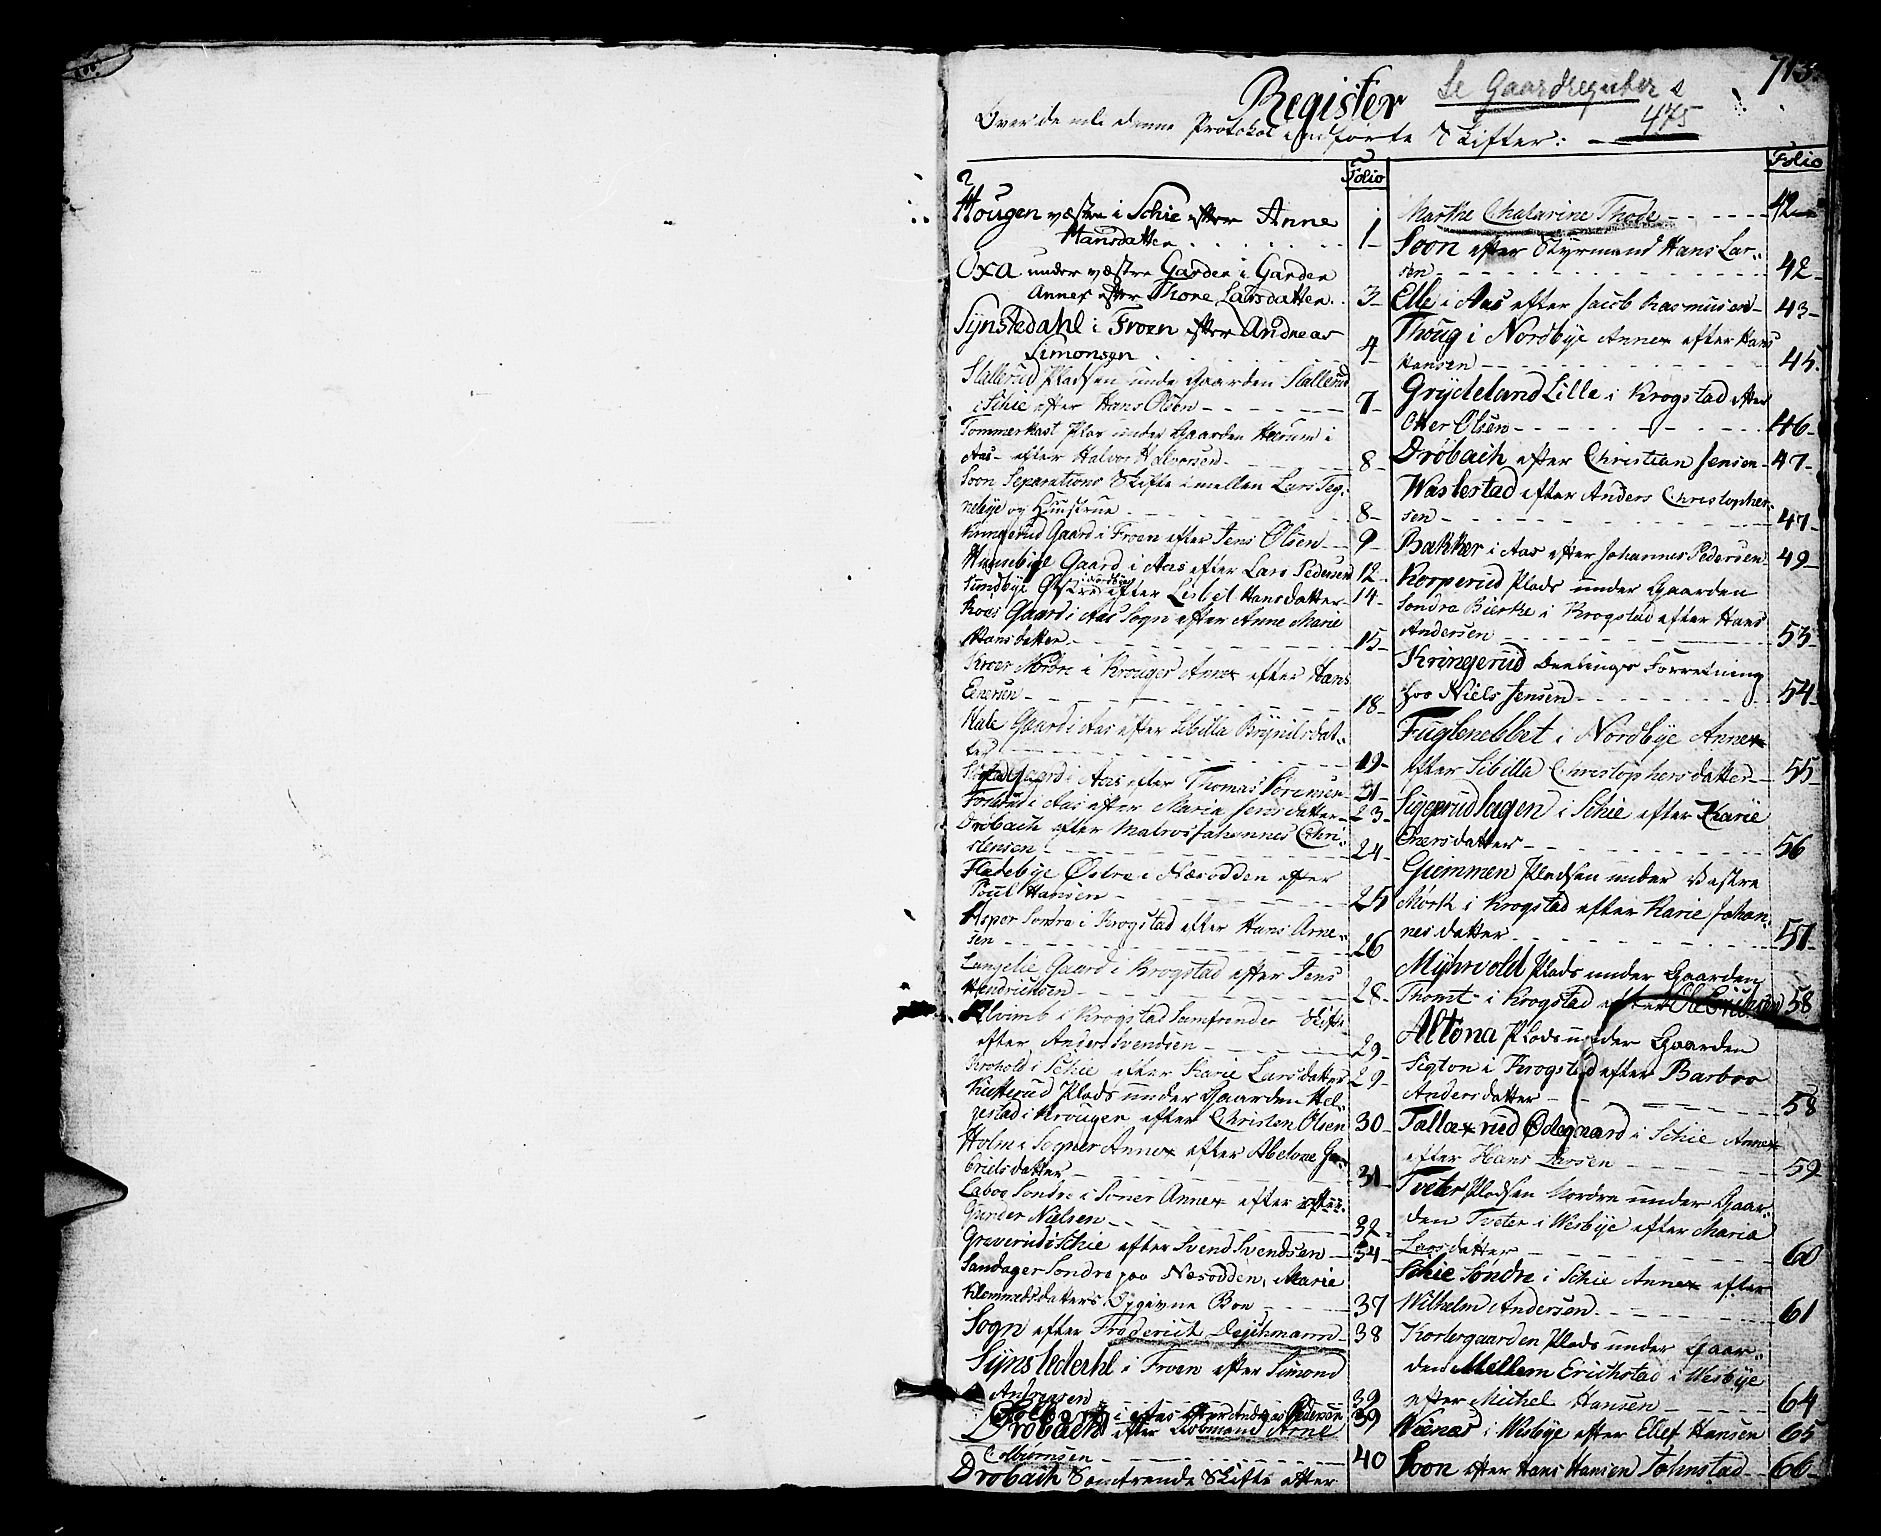 713.
Register Se Gaardregister s
475
Over de udi denne Protokol indførte Skifter:
Folio
Hougen væstre i Schie efter Anne
Hansdatter 1
Oxa under væstre Garder i Garder
Annex efter Thore Larsdatter 3
Sÿnstedahl i Froen efter Andreas
Simonsen 4
Stallerud Pladsen unde Gaarden Stallerud
i Schie efter Hans Olsen 7
Tømmerkast Plas under Gaarden Hærum i
Aas efter Halvor Halvorsen 8
Soon Separations Skifte imellen Lars Teg-
nebye og Huustrue 8
Kringerud Gaard i Froen efter Jens Olsen 9
Huusebye Gaard i Aas efter Lars Pedersen 12
Sundbye Østre i Nordbye efter Lisbet Hansdatter 14
Koes Gaard i Aas Sogn efter Anne Marie
Hansdatter 15
Kroer Nordre i Krouger Annex efter Hans
Enersen 18
Hale Gaard i Aas efter Sibilla Brÿnilsdat-
ter 19
Gaard i Aas efter Thomas Sørensen 21
Foslund i Aas efter Maria Jensdatter 23
Drøbach efter Matros Johannes Chri-
stensen 24
Fladebye Østre i Næsodden efter
Poul Hansen 25
Asper Søndre i Krogstad efter Hans Arne-
sen 26
Langelie Gaard i Krogstad efter Jens
Hendrichsen 28
i Krogstad Samfrender Skifte
efter Anders Svendsen 29
Krohold i Schie efter Karie Larsdatter 29
Kutterud Plads under Gaarden Hel-
gestad i Krouger efter Christen Olsen 30
Holm i Sogner Annex efter Abelone Ga-
brielsdatter 31
Laboe Søndre i Soner Annex efter efter
Gunder Nielsen 32
Greverud i Schie efter Svend Svendsen 34
Sandager Søndre paa Næsodden, Marie
Klemmedsdatters Opgivne Boe 37
Sogn efter Frederich Dejchmann 38
Sÿnstederhl i Froen efter Simond
Andreasen 39
i Aas efter Andreas Pedersen 39
Drøbach efter Kiøbmand Arne
Colbiørnsen 40
Drøbach Samfrende Skifte efter
Folio
Marthe Chatarine Thode 42
Soon efter Styrmand Hans Lar-
sen 42
Elle i Aas efter Jacob Rasmusen 43
Thoug i Nordbÿe Annex efter Hans
Hansen 45
Grÿdeland Lille i Krogstad efter
Otter Olsen 46
Drøbach efter Christian Jensen 47
Wastestad efter Anders Christopher-
sen 47
Bækker i Aas efter Johannes Pedersen 49
Korperud Plads under Gaarden
Søndre Bierke i Krogstad efter Hans
Andersen 53
Kringerud Deelings Forretning
hos Niels Jensen 54
Fuglenebbet i Nordbÿe Annex
efter Sibilla Christophersdatter 55
Siggerudhagen i Schie efter Karie
Enersdatter 56
Grimmen Pladsen under Vestre
Mørk i Krogstad efter Karie Johan-
nesdatter 57
Mÿhrvold Plads under Gaarden
Thomt i Krogstad efter Ole Erichsen 58
Altona Plads under Gaarden
Sigton i Krogstad efter Barbro
Andersdatter 58
Tallaxrud Ødegaard i Schie Annex
efter Hans Larsen 59
Tveter Pladsen Nordre under Gaar-
den Tveter i Wesbÿe efter Maria
Larsdatter 60
Schie Søndre i Schie Annex efter
Wilhelm Andersen 61
Kortergaarden Plads under Gaar-
den Mellem Erichstad i Wesbÿe
efter Michel Hansen 64
Wænas i Wesbÿe efter Ellef Hansen 65
Soon efter Hans Hansen Tohnstad 66